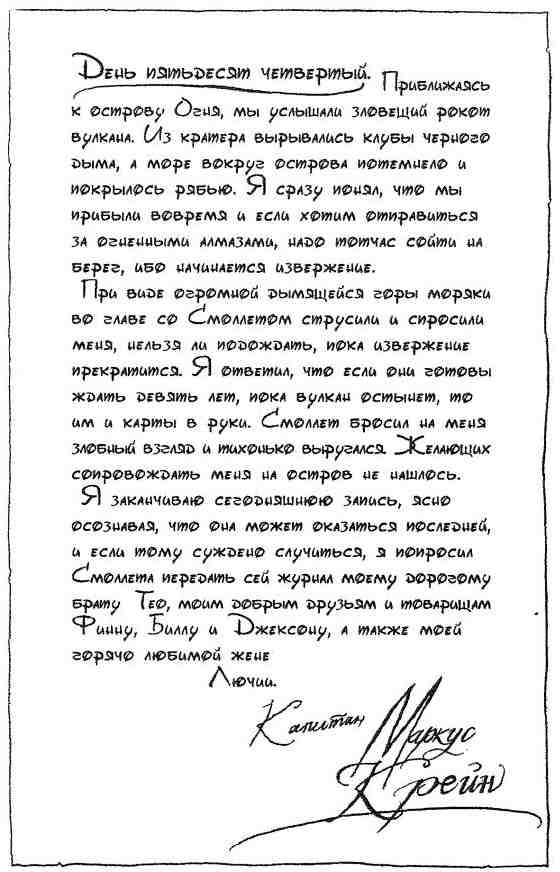 День пятьдесят четвертый. Приближаясь
к острову Огня, мы услышали зловещий рокот
вулкана. Из кратера вырывались клубы черного
дыма, а море вокруг острова потемнело и
покрылось рябью. Я сразу понял, что мы
прибыли вовремя и если хотим отправиться
за огненными алмазами, надо тотчас сойти на
берег, ибо начинается извержение.
При виде огромной дымящейся горы моряки
во главе со Смоллетом струсили и спросили
меня, нельзя ли подождать, пока извержение
прекратится. Я ответил, что если они готовы
ждать девять лет, пока вулкан остынет, то
им и карты в руки. Смоллет бросил на меня
злобный взгляд и тихонько выругался. Желающих
сопровождать меня на остров не нашлось.
Я заканчиваю сегодняшнюю запись, ясно
осознавая, что она может оказаться последней,
и если тому суждено случиться, я попросил
Смоллета передать сей журнал моему дорогому
брату Тео, моим добрым друзьям и товарищам
Финну, Биллу и Джексону, а также моей
горячо любимой жене
Лючии.
Капитан Маркус
Крейн